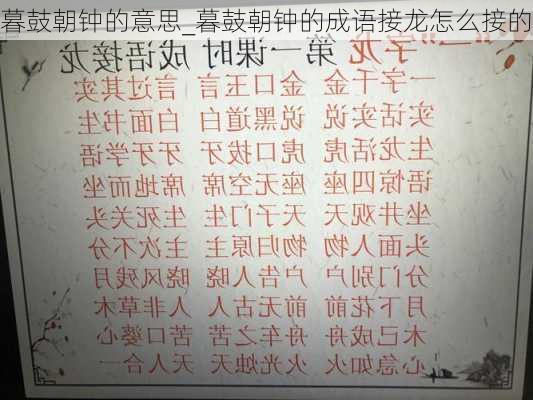 暮鼓朝钟的意思_暮鼓朝钟的成语接龙怎么接的
“一”字龙 第一课时 成语接龙
一字千金 金口玉言 言过其实
实话实说 说黑道白 白面书生
生龙活虎 虎口拔牙 牙牙学语
语惊四座 座无空席 席地而坐
坐井观天 天子门生 生死关头
头面人物 物归原主 主次不分
分门别户 户告人晓 晓风残月
月下花前 前无古人 人非草木
木已成舟 舟车之苦 苦口婆心
心急如火 火光烛天 天人合一